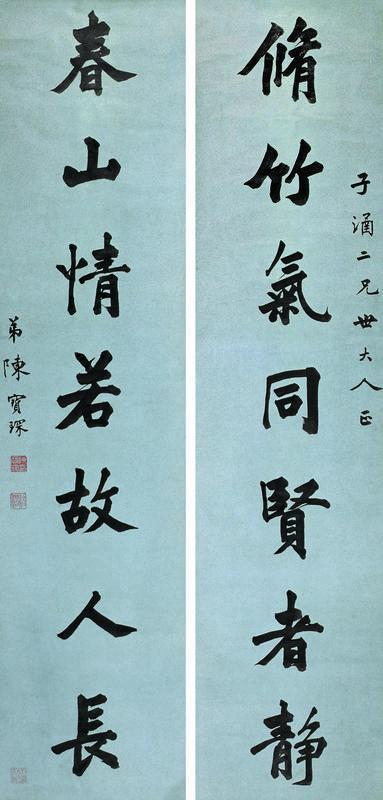 子涵二兄世大人正
脩竹氣同賢者静
春山情若故人長
弟陳寶琛